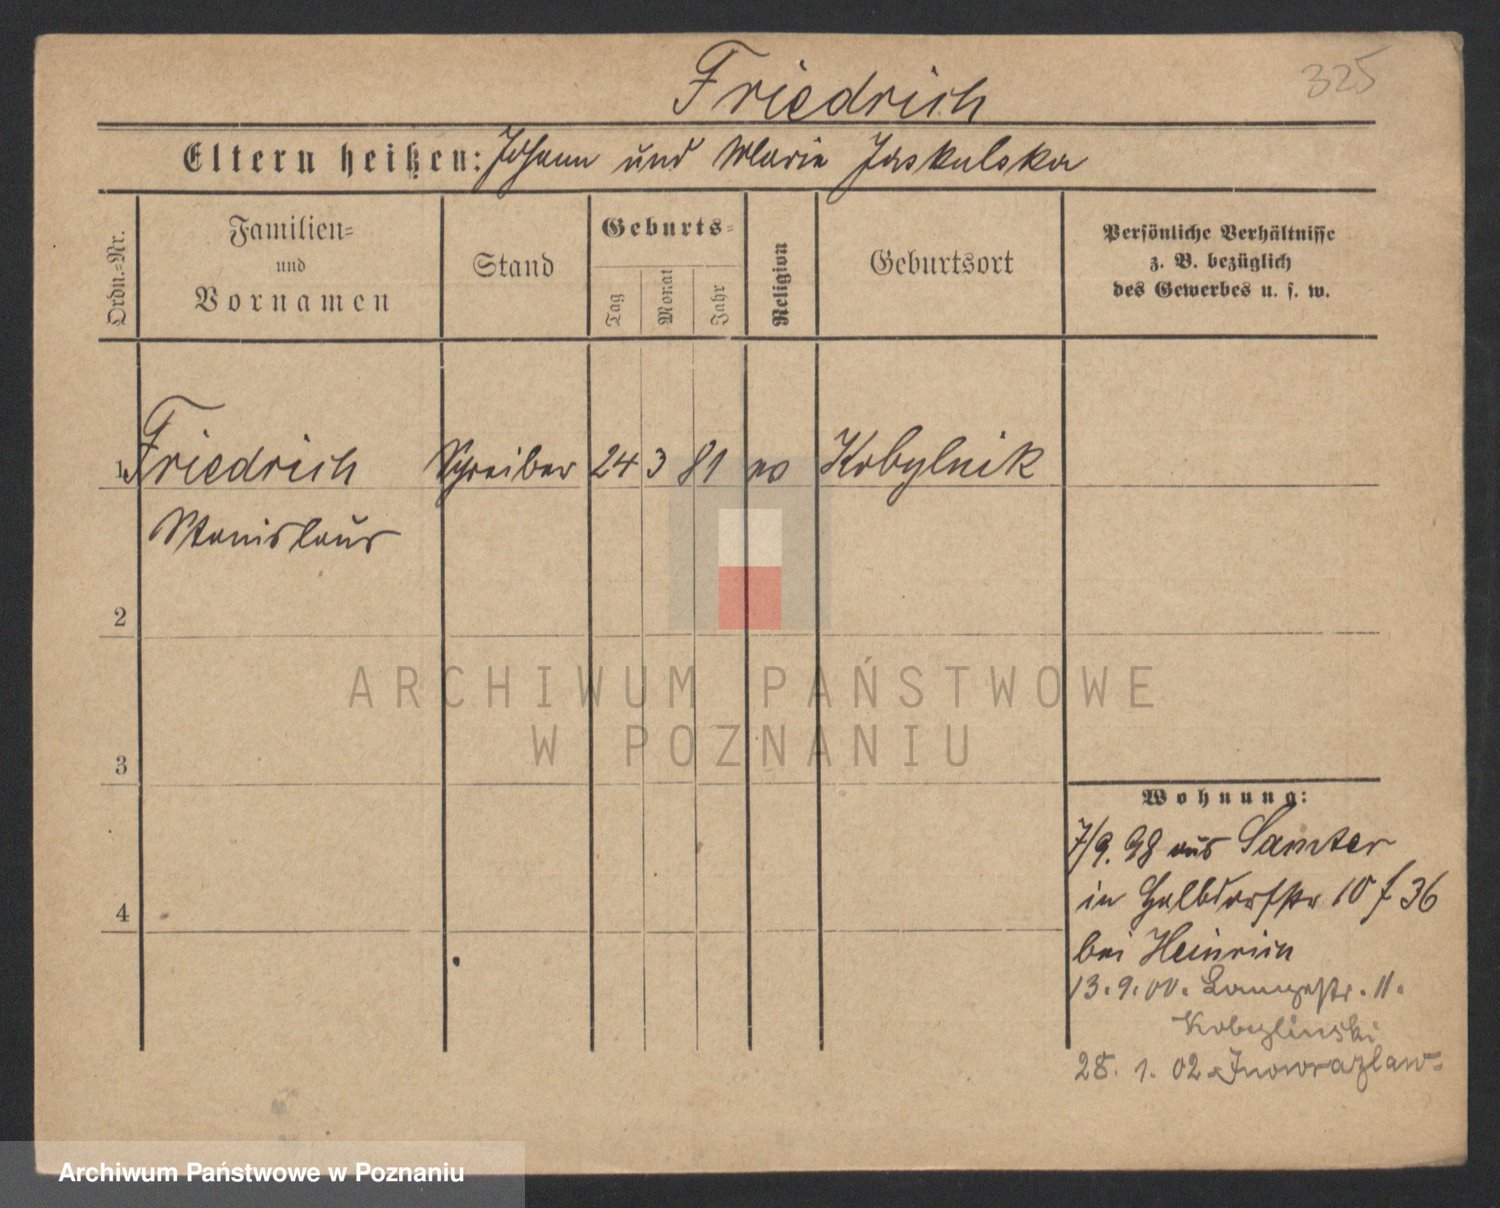 325
Friedrich
Eltern heißen: Johann und Marie Jaskulska
Ordn.-Nr.
Familien-
und
Vornamen
Stand
Geburts-
Tag
Monat
Jahr
Religion
Geburtsort
Persönliche Verhältnisse
z. B. bezüglich
des Gewerbes u. s. w.
1 Friedrich Schreiber 24 3 81 Kobylnik
Stanislaus
2
3
4
ARCHIWUM PAŃSTWOWE
W POZNANIU
Wohnung:
7/9. 98 aus Samter
in Halbdorfstr 10 36
bei Heinrich
13. 9. 00. Langestr. 11.
Kobylinski
28. 1. 02 Inowrazlaw
Archiwum Państwowe w Poznaniu